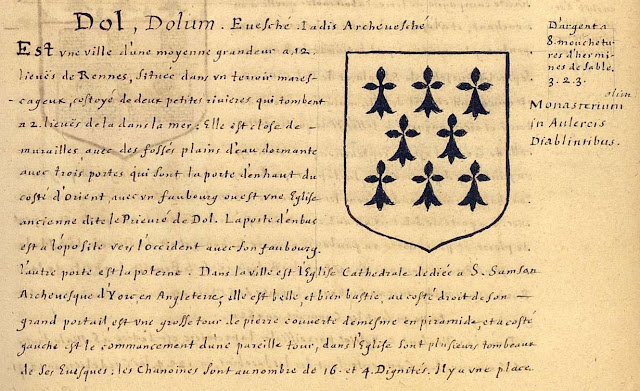 Dol, Dolum. Euesché. Iadis Archeuesché
Est vne ville d'une moyenne grandeur a.12.
lieuës de Rennes, située dans vn terroir mares-
-cageux, costoyé de deux petites riuieres qui tombent
a 2. lieuës de la dans la mer; Elle est close de-
murailles, auec des fossés plains d'eau dormante
auec trois portes qui sont la porte d'enhaut du
costé d'Orient, auec vn faubourg ou est vne Eglise
ancienne dite le Prieuré de Dol. La porte d'enbas
est a l'oposite vers l'Occident auec son faubourg.
l'autre porte est la poterne. Dans la ville est l'Eglise Cathedrale dediée a S. Samson
Archeuesque d'Yorc, en Angleterre, elle est belle et bien bastie, au costé droit de son-
grand portail, est vne grosse tour de pierre couuerte de mesme en piramide, et a costé
gauche est le commancement dune pareille tour, dans l'Eglise sont plusieurs tombeaux
de ses Euesques; les Chanoines sont au nombre de 16. et 4. Dignités. Il y a vne place.
D'argent a
8. mouchetu-
res d'hermi-
nes de sable.
3. 2. 3.
olim
Monasterium
in Aulercis
Diablintibus.